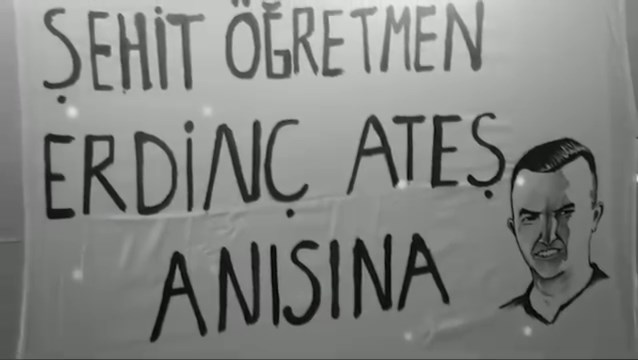 ŞEHİT ÖĞRETMEN
ERDİNÇ ATEŞ
ANISINA